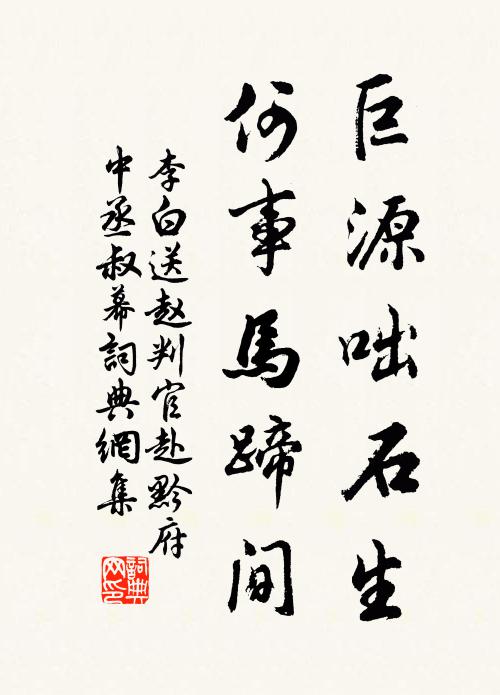 巨源咄石生
何事馬蹄间
李白送赵判官赴黔府
中丞叔幕詞典網集
詞典网印